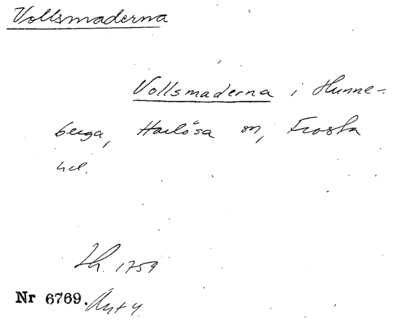 Vollsmaderna
Vollsmaderna i Hunne-
berga, Harlösa sn, Frosta
hd.
Lh. 1759
Nr 6769. Avt 4